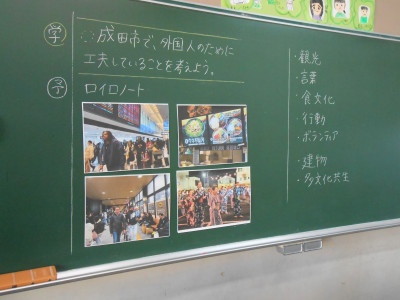 学
成田市で、外国人のために
工夫していることを考えよう。
予
ロイロノート
・観光
・言葉
・食文化
・行動
・ボランティア
・建物
・多文化共生